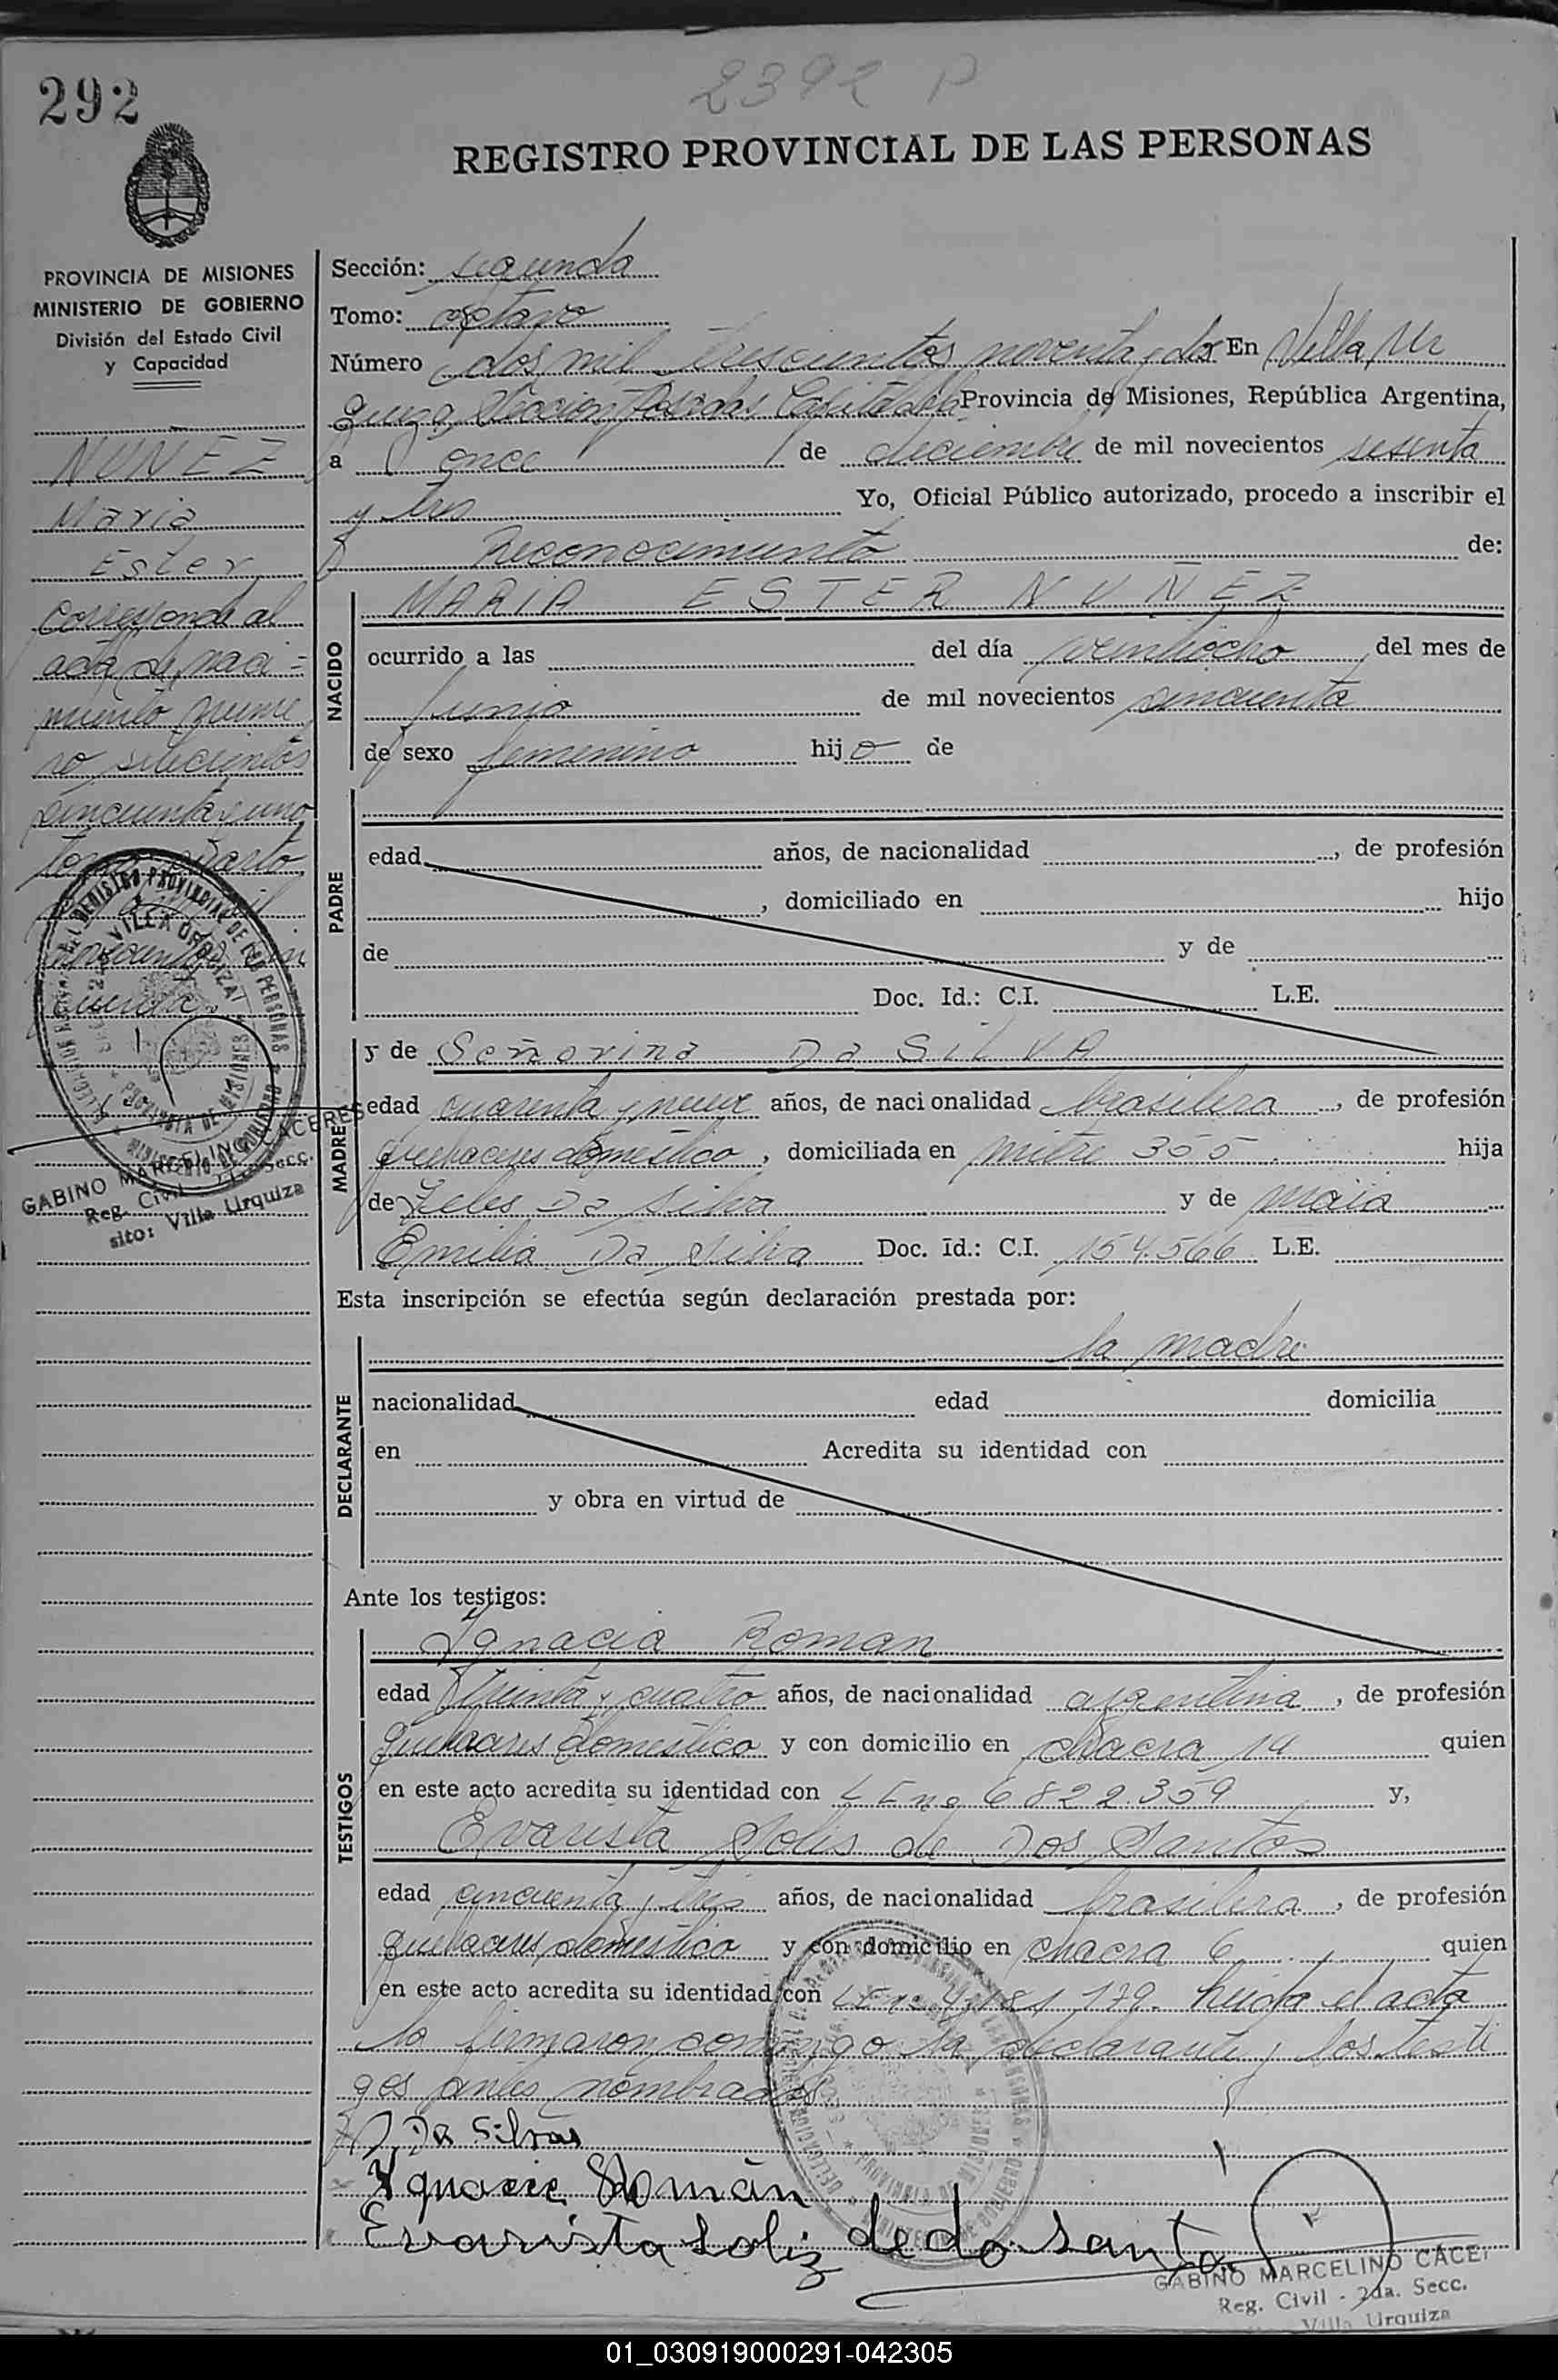 292
2392 P
REGISTRO PROVINCIAL DE LAS PERSONAS
PROVINCIA DE MISIONES
MINISTERIO DE GOBIERNO
División del Estado Civil
y Capacidad
NUÑEZ
Maria
Ester
corresponde al
acta de naci=
miento número
setecientos
cincuenta y uno
tomo cuarto
GABINO MARCELINO CACERES
Reg. Civil - 2da. Secc.
sito: Villa Urquiza
Sección: segunda
Tomo: octavo
Número dos mil trescientos noventa y dos En Villa Ur
quiza, Sección Posadas Capital Provincia de Misiones, República Argentina,
a once de diciembre de mil novecientos sesenta
y tres Yo, Oficial Público autorizado, procedo a inscribir el
Reconocimiento de:
NACIDO
MARIA ESTER NUÑEZ
ocurrido a las del día veintiocho del mes de
Junio de mil novecientos cincuenta
de sexo femenino hijo de
PADRE
edad años, de nacionalidad , de profesión
, domiciliado en hijo
de y de
Doc. Id.: C.I. L.E.
MADRE
y de Señorina Da SILVA
edad cuarenta y nueve años, de nacionalidad brasilera , de profesión
quehaceres doméstico , domiciliada en mitre 355 hija
de Da Silva y de
Emilia Da Silva Doc. Id.: C.I. 154.566 L.E.
Esta inscripción se efectúa según declaración prestada por:
DECLARANTE
la madre
nacionalidad edad domicilia
en Acredita su identidad con
y obra en virtud de
Ante los testigos:
TESTIGOS
Ignacia Roman
edad treinta y cuatro años, de nacionalidad argentina , de profesión
quehaceres doméstico y con domicilio en chacra 14 quien
en este acto acredita su identidad con L E no 6822.359 y,
Evarista Solis de Dos Santos
edad cincuenta y tres años, de nacionalidad brasilera , de profesión
quehaceres doméstico y con domicilio en chacra 6 quien
en este acto acredita su identidad con leida el acta
la firmaron conmigo la declarante y los testi
gos antes nombrados
Da Silvas
Ygnacia Román
Evarista Soliz dedo santo
GABINO MARCELINO CACE
Reg. Civil - 2da. Secc.
Villa Urquiza
01_030919000291-042305